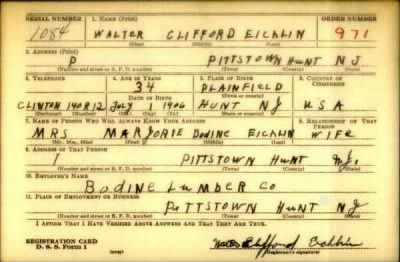 SERIAL NUMBER 1. NAME (Print) ORDER NUMBER
1084 WALTER CLIFFORD EICHLIN 971
(First) (Middle) (Last)
2. ADDRESS (Print)
PITTSTOWN HUNT N J
(Number and street or R. F. D. number) (Town) (County) (State)
3. TELEPHONE 4. AGE IN YEARS 5. PLACE OF BIRTH 6. COUNTRY OF CITIZENSHIP
34 PLAINFIELD
DATE OF BIRTH (Town or county)
CLINTON 140R12 July 1 1906 HUNT NJ USA
(Exchange) (Number) (Mo.) (Day) (Yr.) (State or country)
7. NAME OF PERSON WHO WILL ALWAYS KNOW YOUR ADDRESS 8. RELATIONSHIP OF THAT PERSON
MRS MARJORIE Bodine EICHLIN WIFE
(Mr., Mrs., Miss) (First) (Middle) (Last)
9. ADDRESS OF THAT PERSON
PITTSTOWN HUNT N.J.
(Number and street or R. F. D. number) (Town) (County) (State)
10. EMPLOYER'S NAME
Bodine Lumber Co
11. PLACE OF EMPLOYMENT OR BUSINESS
PITTSTOWN HUNT NJ
(Number and street or R. F. D. number) (Town) (County) (State)
I AFFIRM THAT I HAVE VERIFIED ABOVE ANSWERS AND THAT THEY ARE TRUE.
REGISTRATION CARD
D. S. S. Form 1 (over) Walter Clifford Eichlin
(Registrant's signature)